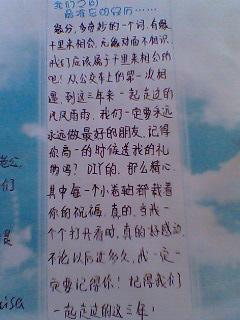 我们之间
最难忘的经历……
缘分，多奇妙的一个词，有缘
千里来相会，无缘对面不相识，
我们应该属于千里来相会的
吧！从公交车上的第一次相
遇，到这三年来一起走过的
风风雨雨，我们一定要永远
永远做最好的朋友，记得
你高一的时候送我的礼
物吗？DIY的，那么精心，
其中每一个小卷轴都载着
你的祝福，真的，当我一
个个打开看时，真的好感动，
不论以后过多久，我一定一
定要记得你！记得我们
一起走过的这三年！
老公，
们
是
isa